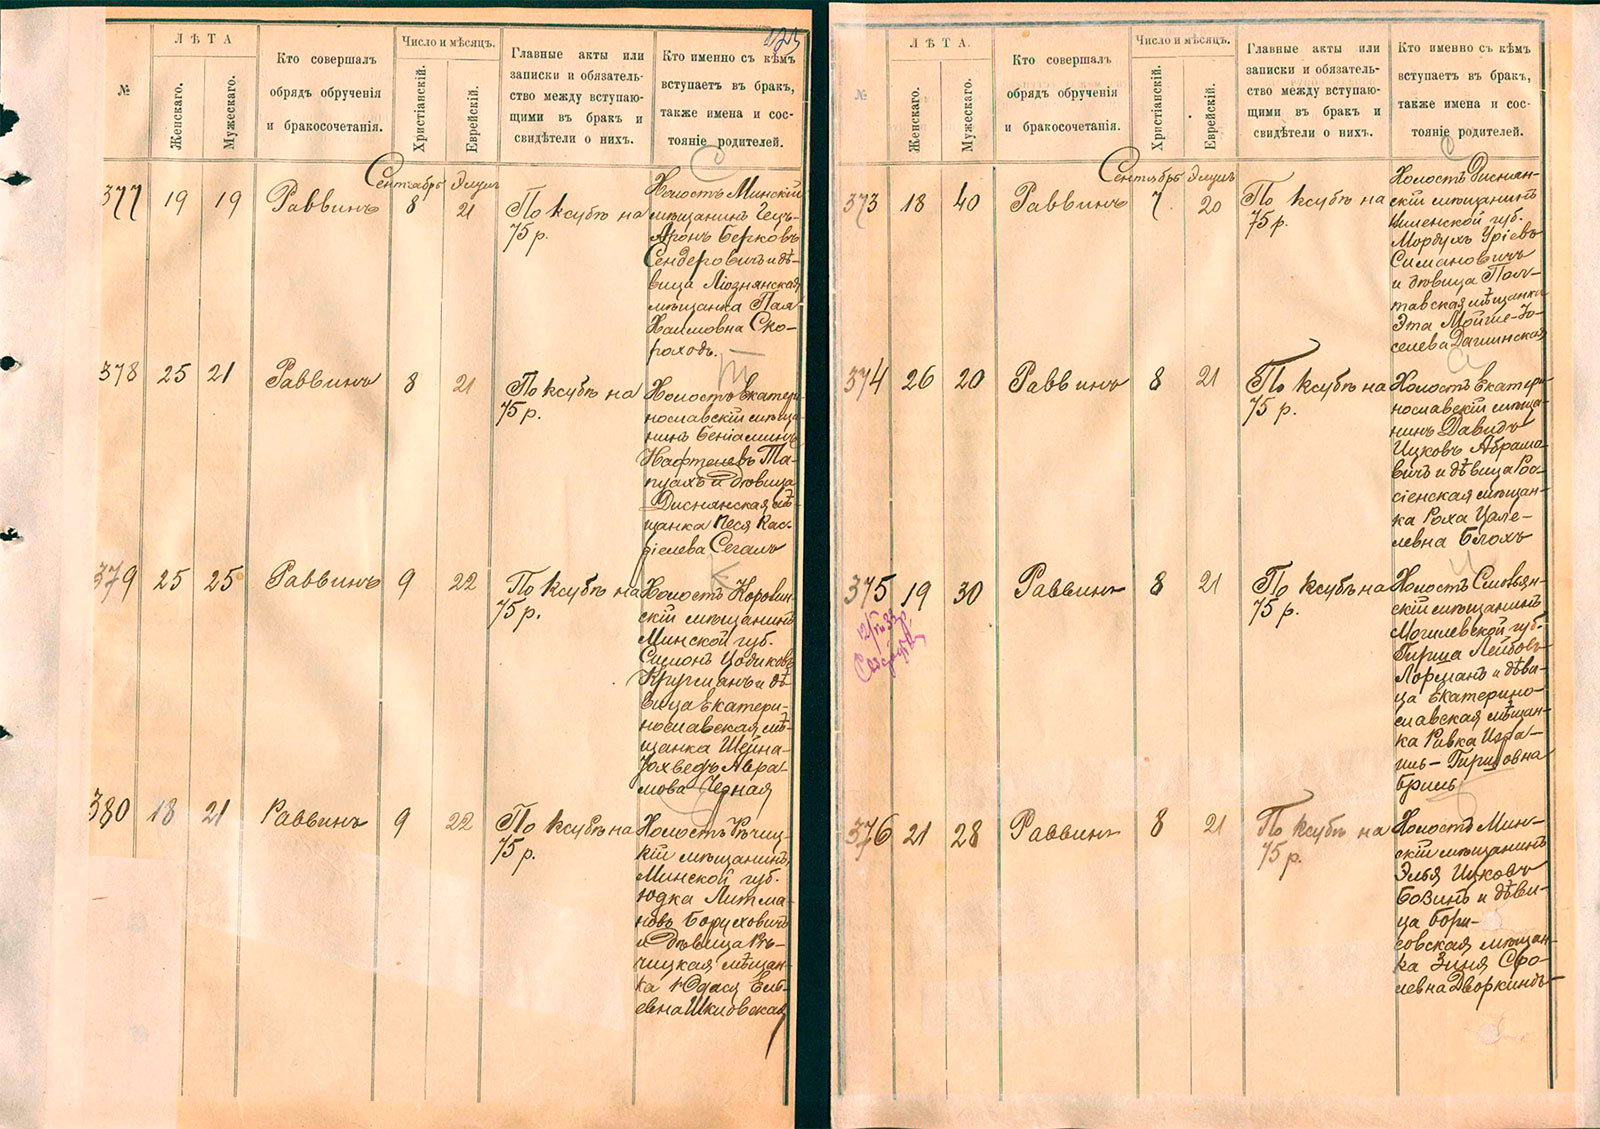 223
№
ЛѢТА
Женскаго.
Мужескаго.
Кто совершалъ
обрядъ обрученія
и бракосочетанія.
Число и мѣсяцъ.
Христіанскій.
Еврейскій.
Главные акты или
записки и обязатель-
ство между вступаю-
щими въ бракъ и
свидѣтели о нихъ.
Кто именно съ кѣмъ
вступаетъ въ бракъ,
также имена и сос-
тояніе родителей.
Сентябрь Элулъ
377 19 19 Раввинъ 8 21
По ксубѣ на
75 р.
Холостъ Минскій
мѣщанинъ Гецъ-
Аронъ Берковъ
Сендеровичъ и дѣ-
вица Ліознянская
мѣщанка Пая
Хаимовна Ско-
роходъ.
378 25 21 Раввинъ 8 21
По ксубѣ на
75 р.
Холостъ Екатери-
нославскій мѣща-
нинъ Беніаминъ
Нафтелевъ Та-
пуахъ и дѣвица
Диснянская мѣ-
щанка Песя Кас-
ріелева Сегалъ
379 25 25 Раввинъ 9 22
По ксубѣ на
75 р.
Холостъ
скій мѣщанинъ
Минской губ.
Симонъ Цодиковъ
Кругманъ и дѣ-
вица Екатери-
нославская мѣ-
щанка Шейна-
Іохведъ Авра-
мова Черная
380 18 21 Раввинъ 9 22
По ксубѣ на
75 р.
Холостъ Рѣчиц-
кій мѣщанинъ
Минской губ.
Юдка Литма-
новъ Боруховичъ
и дѣвица Рѣ-
чицкая мѣщан-
ка Юдася Ель-
евна Шкловская
№
ЛѢТА.
Женскаго.
Мужескаго.
Кто совершалъ
обрядъ обрученія
и бракосочетанія.
Число и мѣсяцъ.
Христіанскій.
Еврейскій.
Главные акты или
записки и обязатель-
ство между вступаю-
щими въ бракъ и
свидѣтели о нихъ.
Кто именно съ кѣмъ
вступаетъ въ бракъ,
также имена и сос-
тояніе родителей.
Сентябрь Элулъ
373 18 40 Раввинъ 7 20
По ксубѣ на
75 р.
Холостъ Диснян-
скій мѣщанинъ
Виленской губ.
Мордухъ Уріевъ
Симановичъ
и дѣвица Пол-
тавская мѣщанка
Эта Мойше-Іо-
селева Даглинская
374 26 20 Раввинъ 8 21
По ксубѣ на
75 р.
Холостъ Екатери-
нославскій мѣща-
нинъ Давидъ
Ицковъ Абрамо-
вичъ и дѣвица Рос-
сіенская мѣщан-
ка Роха Цале-
левна Блохъ
375 19 30 Раввинъ 8 21
По ксубѣ на
75 р.
Холостъ Смольян-
скій мѣщанинъ
Могилевской губ.
Гирша Лейбовъ
Лорманъ и дѣви-
ца Екатерино-
славская мѣщан-
ка Ривка Изра-
иль-Гиршовна
Бриль
376 21 28 Раввинъ 8 21
По ксубѣ на
75 р.
Холостъ Мин-
скій мѣщанинъ
Элья Ицковъ
Бозинъ и дѣви-
ца Бори-
совская мѣщан-
ка Зиля Сро-
левна Дворкиндъ